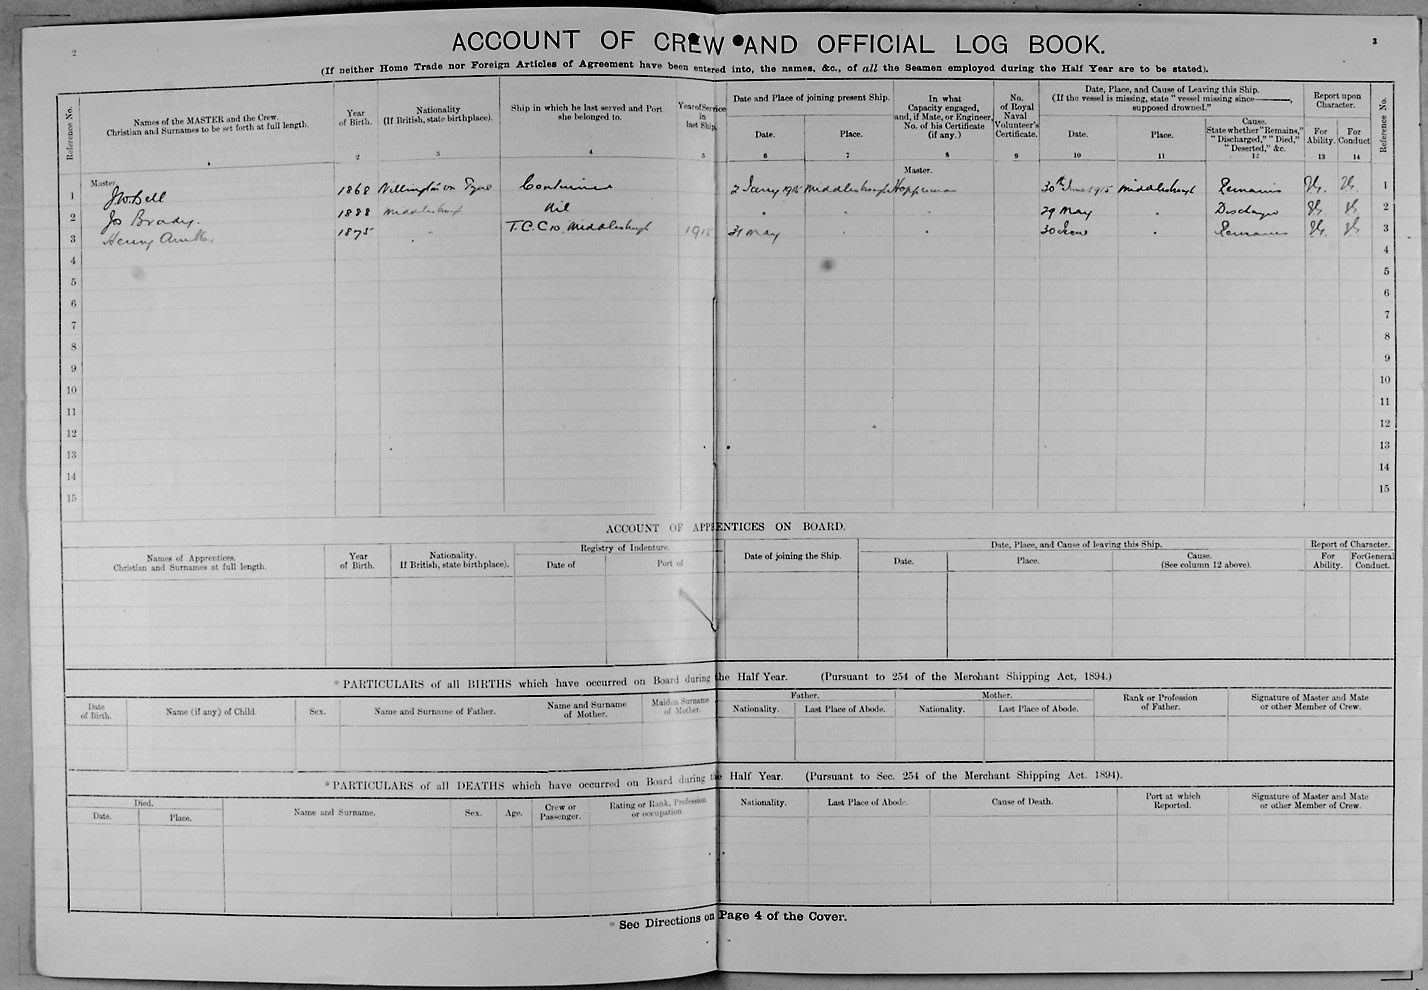 2
3
ACCOUNT OF CREW AND OFFICIAL LOG BOOK.
(If neither Home Trade nor Foreign Articles of Agreement have been entered into, the names, &c., of all the Seamen employed during the Half Year are to be stated).
Reference No.
Names of the MASTER and the Crew.
Christian and Surnames to be set forth at full length.
1
Year
of Birth.
2
Nationality
(If British, state birthplace).
3
Ship in which he last served and Port
she belonged to.
4
Year of Service
in
last Ship.
5
Date and Place of joining present Ship.
Date.
6
Place.
7
In what
Capacity engaged,
and, if Mate, or Engineer,
No. of his Certificate
(if any.)
8
No.
of Royal
Naval
Volunteer's
Certificate.
9
Date, Place, and Cause of Leaving this Ship.
(If the vessel is missing, state "vessel missing since ———,
supposed drowned."
Date.
10
Place.
11
Cause.
State whether "Remains,"
"Discharged," "Died,"
"Deserted," &c.
12
Report upon
Character.
For
Ability.
13
For
Conduct
14
Reference No.
Master
Master.
1 J W Bell 1868 Willington on Tyne Continues 2 Jany 1915 Middlesbrough Hopperman 30th June 1915 Middlesbrough Remains VG. VG. 1
2 Jos Brady. 1888 Middlesbrough Nil " " " 29 May " Discharged VG VG 2
3 Henry 1875 " T.C.C 10 Middlesbrough 1915 31 May " " 30 June " Remains VG. VG. 3
4 4
5 5
6 6
7 7
8 8
9 9
10 10
11 11
12 12
13 13
14 14
15 15
ACCOUNT OF APPRENTICES ON BOARD.
Names of Apprentices.
Christian and Surnames at full length.
Year
of Birth.
Nationality.
If British, state birthplace).
Registry of Indenture.
Date of
Port of
Date of joining the Ship.
Date, Place, and Cause of leaving this Ship.
Date.
Place.
Cause.
(See column 12 above).
Report of Character.
For
Ability.
For General
Conduct.
*PARTICULARS of all BIRTHS which have occurred on Board during the Half Year. (Pursuant to 254 of the Merchant Shipping Act, 1894.)
Date
of Birth.
Name (if any) of Child.
Sex.
Name and Surname of Father.
Name and Surname
of Mother.
Maiden Surname
of Mother.
Father.
Nationality.
Last Place of Abode.
Mother.
Nationality.
Last Place of Abode.
Rank or Profession
of Father.
Signature of Master and Mate
or other Member of Crew.
*PARTICULARS of all DEATHS which have occurred on Board during the Half Year. (Pursuant to Sec. 254 of the Merchant Shipping Act. 1894).
Died.
Date.
Place.
Name and Surname.
Sex.
Age.
Crew or
Passenger.
Rating or Rank, Profession
or occupation.
Nationality.
Last Place of Abode.
Cause of Death.
Port at which
Reported.
Signature of Master and Mate
or other Member of Crew.
* See Directions on Page 4 of the Cover.